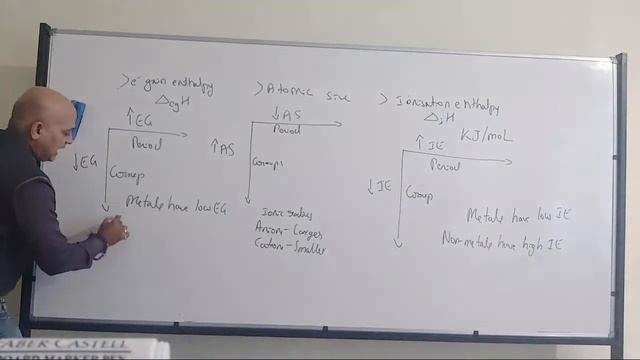 > e⁻ gain enthalpy
ΔegH
↑ EG
Period
↓ EG
Group
Metals have low EG
> Atomic size
↓ AS
Period
↑ AS
Group
Ionic radius
Anion - Larger
Cation - Smaller
> Ionisation enthalpy
ΔiH
KJ/moL
↑ IE
Period
↓ IE
Group
Metals have low IE
Non-metals have high IE
FABER CASTELL
BOARD MARKER PEN